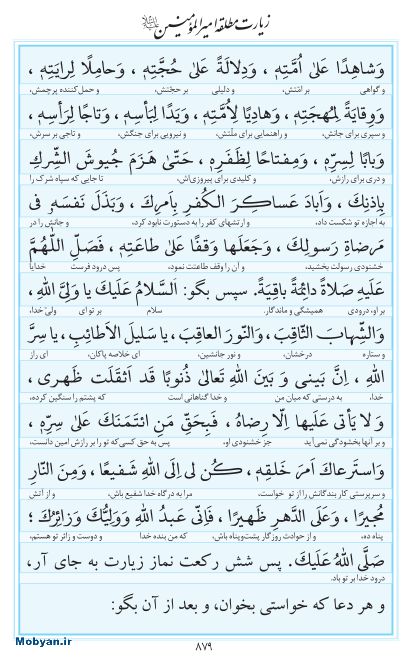 زیارت مطلقه امیرالمؤمنین علیه‌السلام
وَشاهِدًا عَلیٰ اُمَّتِهٖ ، وَدِلالَةً عَلیٰ حُجَّتِهٖ ، وَحامِلًا لِرایَتِهٖ ،
و گواهی بر امّتش، و دلیلی بر حجتش، و حمل‌کننده پرچمش،
وَوِقایَةً لِمُهجَتِهٖ ، وَهادِیًا لِاُمَّتِهٖ ، وَیَدًا لِبَأسِهٖ ، وَتاجًا لِرَأسِهٖ ،
و سپری برای جانش، و راهنمایی برای ملّتش، و نیرویی برای جنگش، و تاجی بر سرش،
وَبابًا لِسِرِّهٖ ، وَمِفتاحًا لِظَفَرِهٖ ، حَتّیٰ هَزَمَ جُیوشَ الشِّرکِ
و دری برای رازش، و کلیدی برای پیروزی‌اش، تا جایی که سپاه شرک را
بِاِذنِکَ ، وَاَبادَ عَساکِرَ الکُفرِ بِاَمرِکَ ، وَبَذَلَ نَفسَهٗ فی
به اجازه تو شکست داد، و ارتشهای کفر را به دستورت نابود کرد، و جانش را در
مَرضاةِ رَسولِکَ ، وَجَعَلَها وَقفًا عَلیٰ طاعَتِهٖ ، فَصَلِّ اللّٰهُمَّ
خشنودی رسولت بخشید، و آن را وقف طاعتت نمود، پس درود فرست خدایا
عَلَیهِ صَلاةً دائِمَةً باقِیَةً. سپس بگو: اَلسَّلامُ عَلَیکَ یا وَلِیَّ اللّٰهِ ،
بر او، درودی همیشگی و ماندگار. سلام بر تو ای ولی خدا،
وَالشِّهابَ الثّاقِبَ، وَالنّورَ العاقِبَ، یا سَلیلَ الاَطائِبِ، یا سِرَّ
و ستاره درخشان، و نور جانشین، ای خلاصه پاکان، ای راز
اللّٰهِ ، اِنَّ بَینی وَ بَینَ اللّٰهِ تَعالیٰ ذُنوبًا قَد اَثقَلَت ظَهری ،
خدا، به درستی که میان من و خدا گناهانی است که پشتم را سنگین کرده،
وَ لا یَأتی عَلَیها اِلّا رِضاهُ ، فَبِحَقِّ مَنِ ائتَمَنَکَ عَلیٰ سِرِّهٖ ،
و بر آنها بخشودگی نمی‌آید جز خشنودی او، پس به حق کسی‌که تو را بر رازش امین دانست،
وَاستَرعاکَ اَمرَ خَلقِهٖ، کُن لی اِلَی اللّٰهِ شَفیعًا ، وَمِنَ النّارِ
و سرپرستی کار بندگانش را از تو خواست، مرا به درگاه خدا شفیع باش، و از آتش
مُجیرًا ، وَعَلَی الدَّهرِ ظَهیرًا ، فَاِنّی عَبدُ اللّٰهِ وَوَلِیُّکَ وَزائِرُکَ ؛
پناه ده، و از حوادث روزگار پشت‌وپناه باش، که من بنده خدا و دوست و زائر تو هستم،
صَلَّی اللّٰهُ عَلَیکَ. پس شش رکعت نماز زیارت به جای آر،
درود خدا بر تو باد.
و هر دعا که خواستی بخوان، و بعد از آن بگو:
۸۷۹
Mobyan.ir